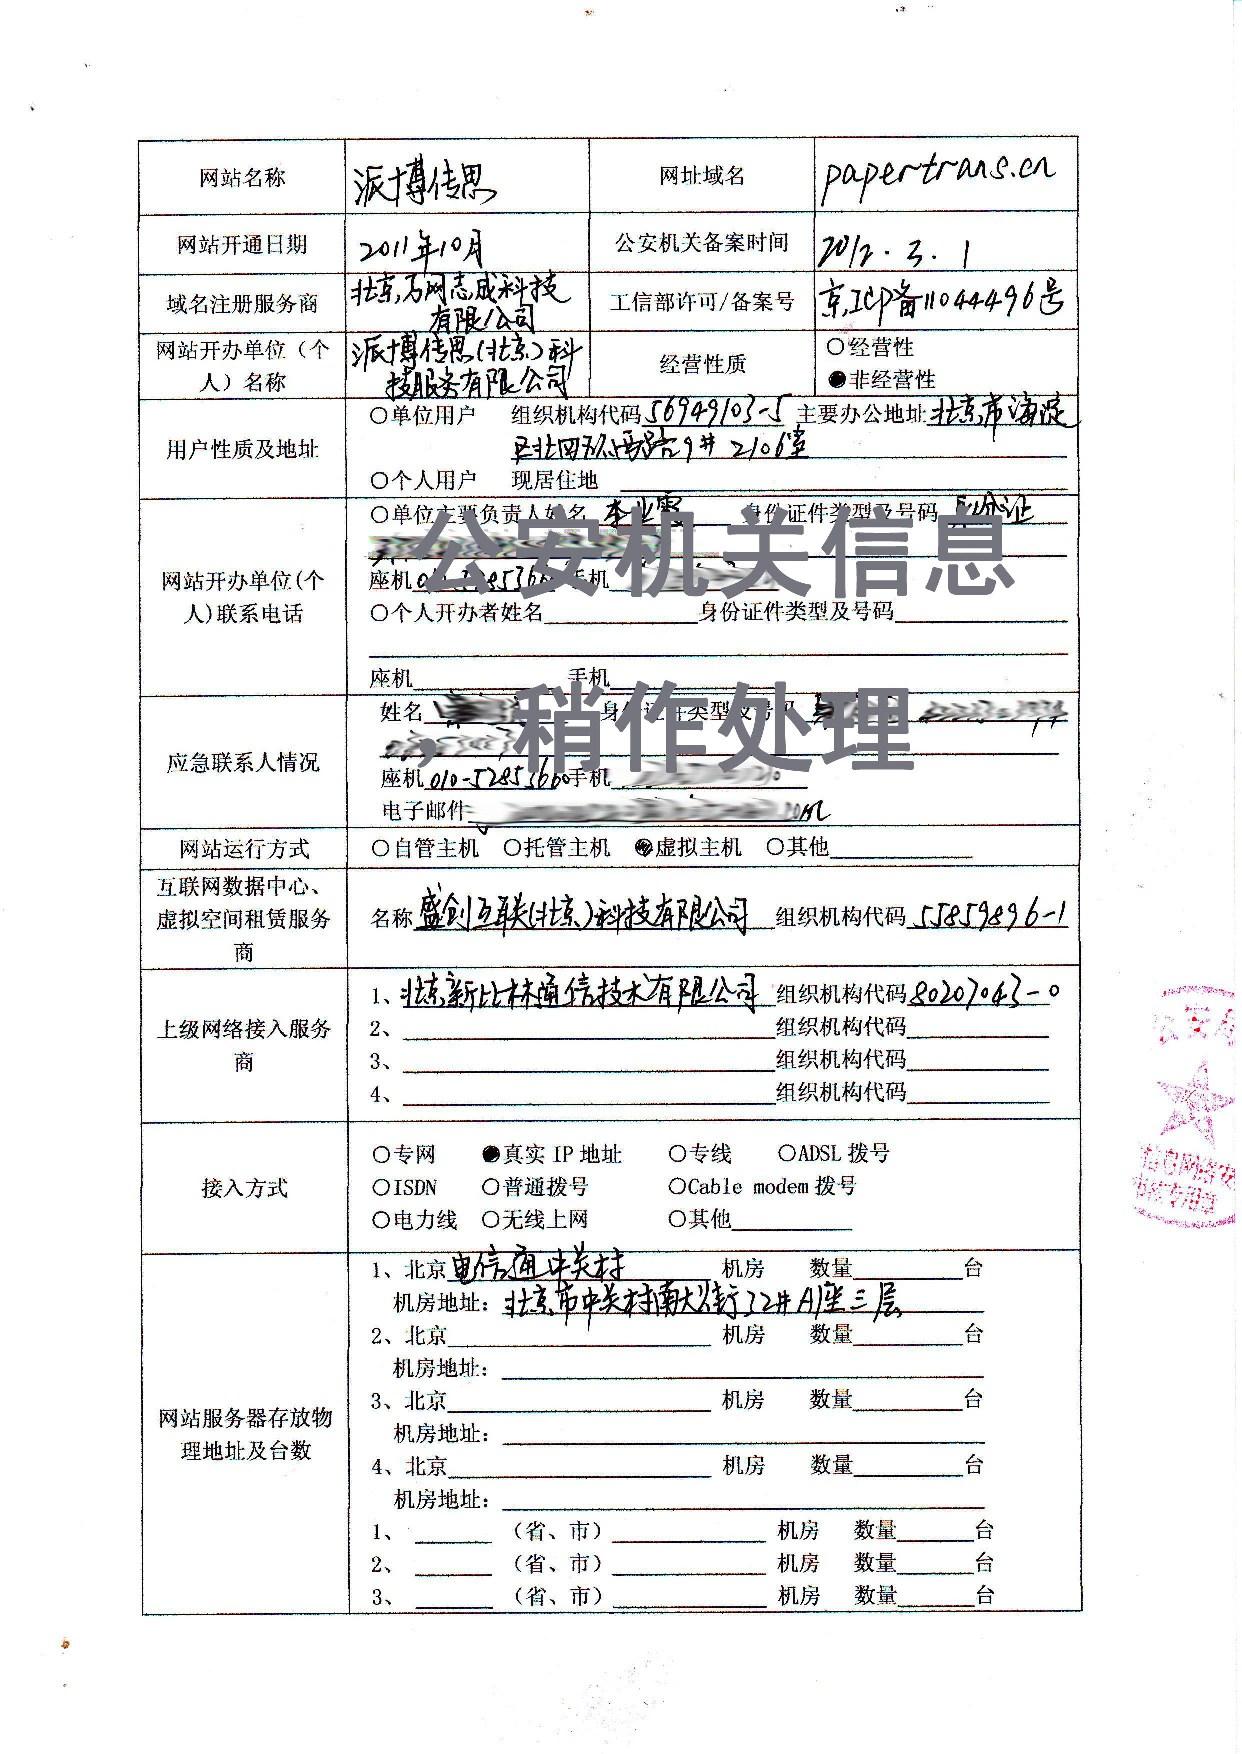 网站名称 派博传思 网址域名 papertrans.cn
网站开通日期 2011年10月 公安机关备案时间 2012.3.1
域名注册服务商 北京万网志成科技 工信部许可/备案号 京ICP备11044496号
有限公司
网站开办单位（个 派博传思(北京)科 经营性质 ○经营性
人）名称 技服务有限公司 ●非经营性
用户性质及地址 ○单位用户 组织机构代码56949103-5 主要办公地址北京市海淀
区北四环西路9# 2106室
○个人用户 现居住地
○单位主要负责人姓名 身份证件类型及号码 身份证
公安机关信息
网站开办单位(个 座机 手机
人)联系电话 ○个人开办者姓名 身份证件类型及号码
座机 手机
，稍作处理
姓名 身份证件类型及号码
应急联系人情况
座机010-52853660手机
电子邮件
网站运行方式 ○自管主机 ○托管主机 ●虚拟主机 ○其他
互联网数据中心、
虚拟空间租赁服务 名称盛创互联(北京)科技有限公司 组织机构代码55859896-1
商
上级网络接入服务 1、北京新比林通信技术有限公司 组织机构代码80207043-0
商 2、 组织机构代码
3、 组织机构代码
4、 组织机构代码
接入方式 ○专网 ●真实 IP 地址 ○专线 ○ADSL 拨号
○ISDN ○普通拨号 ○Cable modem 拨号
○电力线 ○无线上网 ○其他
网站服务器存放物 1、北京电信通中关村 机房 数量 台
理地址及台数 机房地址：北京市中关村南大街32# A座三层
2、北京 机房 数量 台
机房地址：
3、北京 机房 数量 台
机房地址：
4、北京 机房 数量 台
机房地址：
1、 （省、市） 机房 数量 台
2、 （省、市） 机房 数量 台
3、 （省、市） 机房 数量 台
公安局
信息网络安
专用章